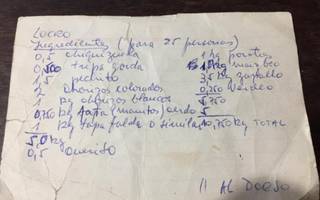 LOCRO
Ingredientes (para 25 personas)
0,5 chiquizuela 1 kg porotos
0,500 tripa gorda 1 kg maiz bco
1,5 pechito 3,5 kg zapallo
2 chorizos colorados 0,250 verdeo
1 kg chorizos blancos 5,750
0,750 kg patita (manitos) cerdo 5
1 kg tapa falda o similar 10,750 kg TOTAL
5,0 kg
0,5 cuerito
AL DORSO